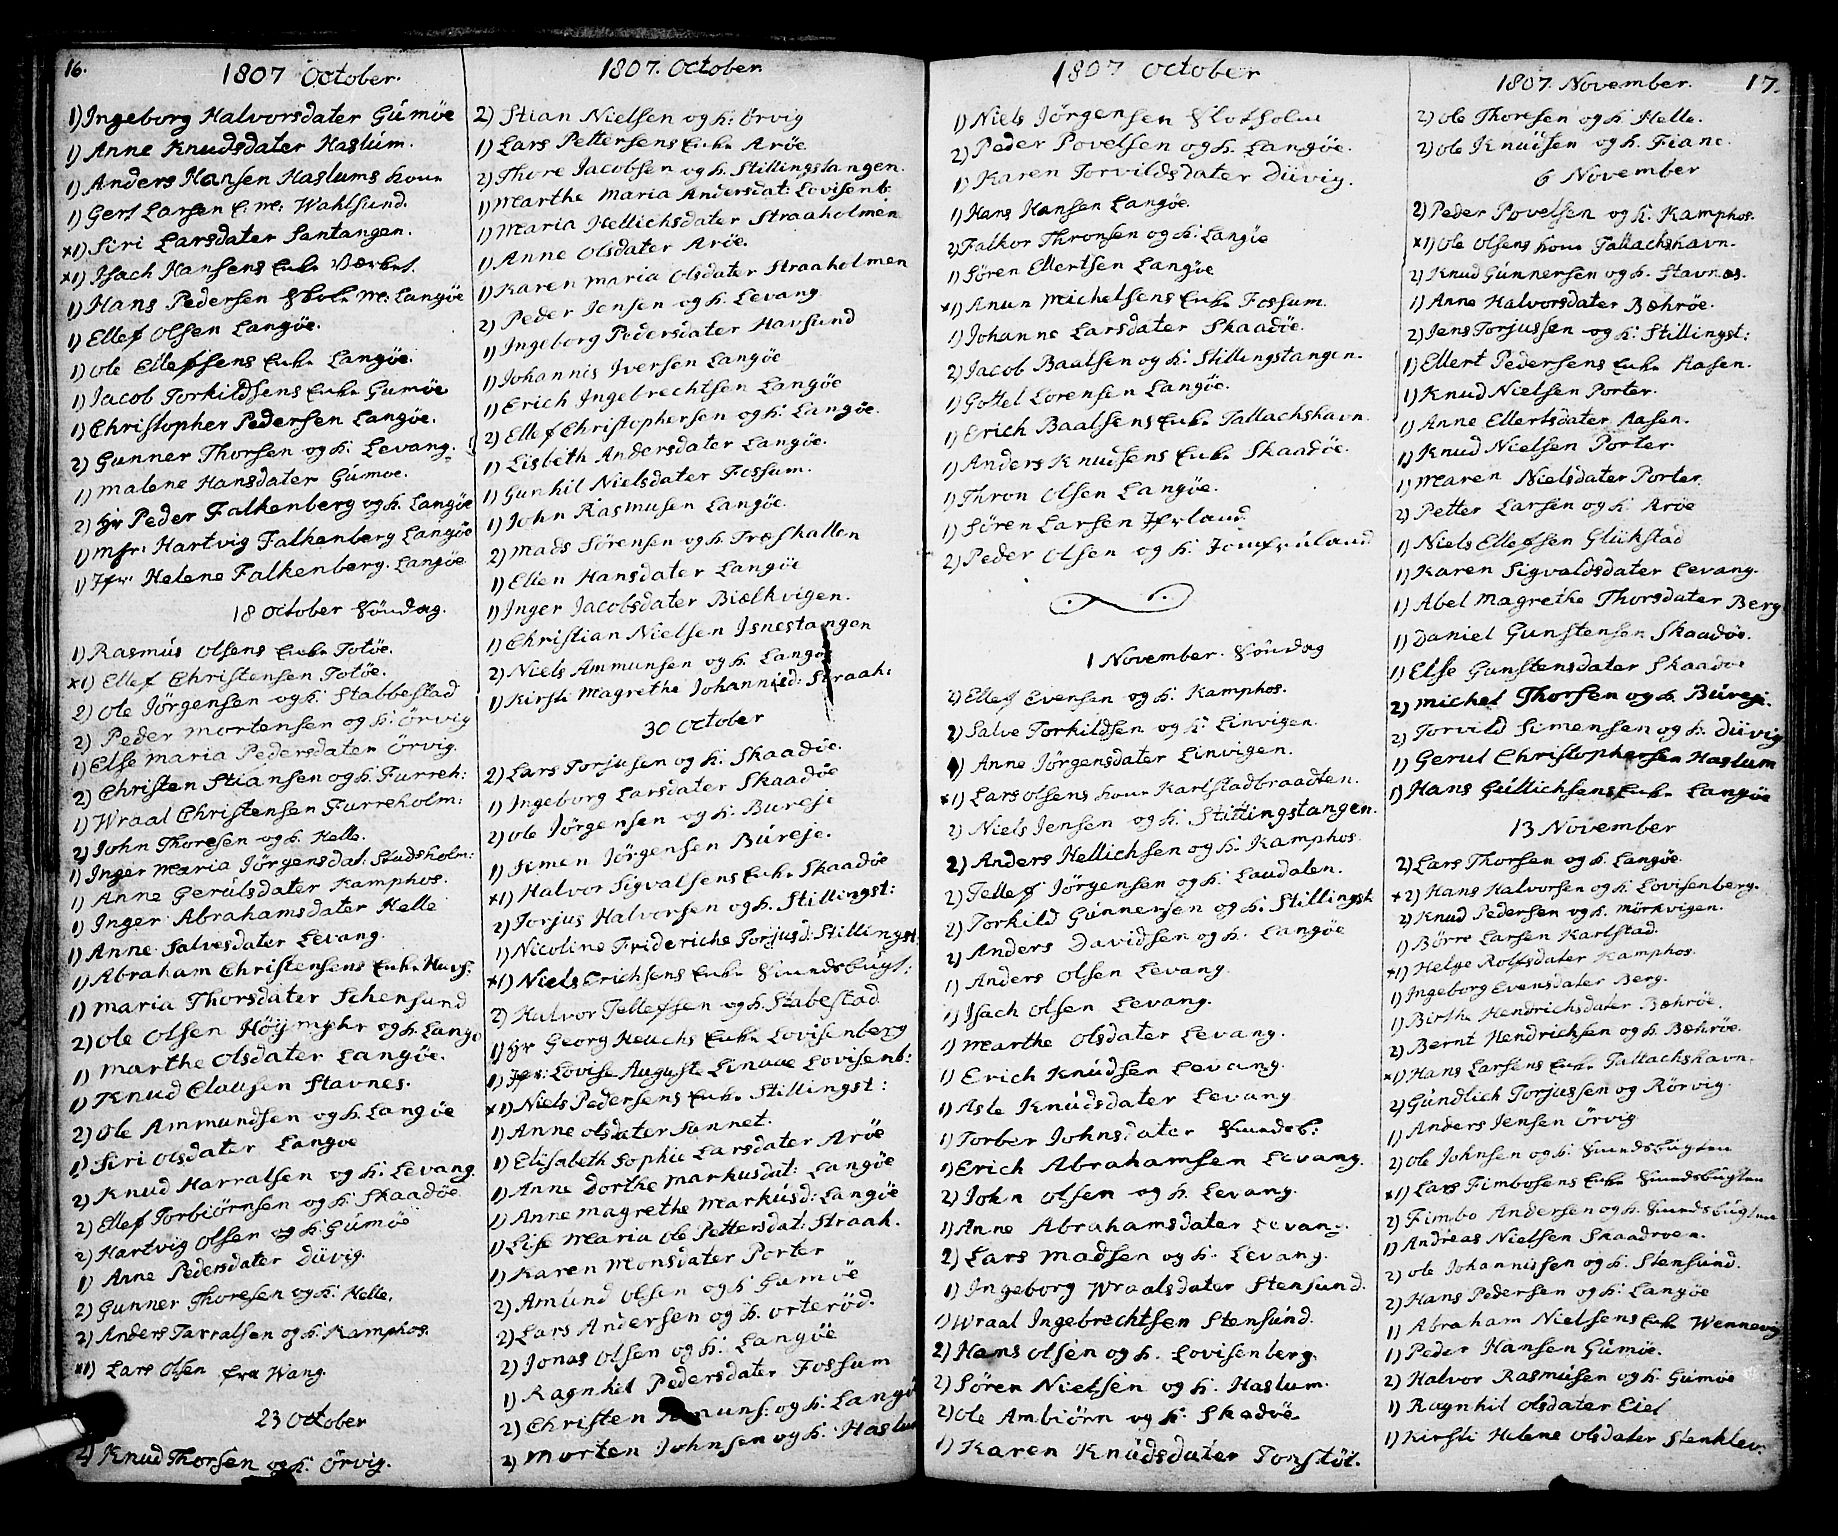 16.
1807 October.
1) Ingeborg Halvorsdater Gumøe
1) Anne Knudsdater Haslum.
1) Anders Hansen Haslums kone
1) Gert Larsen e: m: Wahlsund.
*1) Siri Larsdater Santangen.
*1) Isach Hansens Enke Værket.
1) Hans Pedersen Skolem: Langøe
1) Ellef Olsen Langøe.
1) Ole Ellefsens Enke Langøe.
1) Jacob Torkildsens Enke Gumøe
1) Christopher Pedersen Langøe.
2) Gunner Thorsen og k: Levang.
1) Malene Hansdater Gumøe.
2) Hr Peder Falkenberg og k. Langøe
1) Mfr: Hartvig Falkenberg Langøe
1) Jfr: Helene Falkenberg. Langøe
18 October Søndag.
1) Rasmus Olsens Enke Totøe.
*1) Ellef Christensen Totøe.
2) Ole Jørgensen og k: Stabbestad
2) Peder Mortensen og k: Ørvig
1) Else Maria Pedersdater Ørvig.
2) Christen Stiansen og k. Furreh:
1) Wraal Christensen Furreholm:
2) John Thoresen og k. Helle.
1) Inger Maria Jørgensdat. Stadsholm:
1) Anne Gerulsdater Kamphos.
1) Inger Abrahamsdater Helle
1) Anne Salvesdater Levang.
1) Abraham Christensens Enke Havs:
1) Maria Thorsdater Schensund
2) Ole Olsen Høijmyhr og k. Langø
1) Marthe Olsdater Langøe.
1) Knud Clausen Stavnes.
2) Ole Ammundsen og k. Langøe
1) Siri Olsdater Langøe
2) Knud Harralsen og k: Levang.
2) Ellef Torbiørnsen og k: Skaadøe
2) Hartvig Olsen og k: Gumøe
1) Anne Pedersdater Düvig.
2) Gunner Thoresen og k: Helle.
2) Anders Tarralsen og k: Kamphos.
*1) Lars Olsen fra Wang.
23 October
2) Knud Thorsen og k: Ørvig.
1807. October.
2) Stian Nielsen og k: Ørvig
1) Lars Pettersens Enke Arøe
2) Thore Jacobsen og k. Stillingstangen.
1) Marthe Maria Andersdat: Lovisenb:
1) Maria Hellichsdater Straaholmen
1) Anne Olsdater Arøe.
1) Karen Maria Olsdater Straaholmen
2) Peder Jensen og k. Levang
1) Ingeborg Pedersdater Havsund
1) Johannis Iversen Langøe
1) Erich Ingebrechtsen Langøe
2) Ellef Christophersen og k: Langøe.
1) Lisbeth Andersdater Langøe.
1) Gunhil Nielsdater Fossum.
1) John Rasmusen Langøe.
2) Mads Sørensen og k. Træskallen
1) Ellen Hansdater Langøe
1) Inger Jacobsdater Biælkvigen.
1) Christian Nielsen Isnestangen
2) Niels Ammunsen og k. Langøe
1) Kirsti Magrethe Johannisd: Straah:
30 October
2) Lars Torjusen og k: Skaadøe.
1) Ingeborg Larsdater Skaadøe
2) Ole Jørgensen og k: Bureje
1) Simen Jørgensen Büreje.
*1) Halvor Sigvalsens Enke Skaadøe
2) Torjus Halvorsen og k. Stillingst:
1) Nicoline Friderichs Torjusd: Stillingst
*1) Niels Erichsens Enke Smedsbügt:
2) Halvor Tellefsen og k. Stabestad
1) Hr Georg Heuchs Enke Lovisenberg
1) Jfr: Lovise Auguste Linaae Lovisenb:
*1) Niels Pedersens Enke Stillingst:
1) Anne Olsdater Sannet.
1) Elisabeth Sophie Larsdater Arøe
1) Anne Dorthe Markusdat: Langøe
1) Anne Magrethe Markusd: Langøe
1) Lise Maria Ole Pettersdat: Straah.
1) Karen Monsdater Porter
2) Amund Olsen og k. Gumøe
2) Lars Andersen og k. Orterød.
2) Jonas Olsen og k: Langøe
1) Ragnhil Pedersdater Fossum
2) Christen Amuns: og k: Langø
2) Morten Johnsen og k: Haslum
1807 October
1) Niels Jørgensen Slotholm
2) Peder Povelsen og k. Langøe.
1) Karen Torvildsdater Düvig.
1) Hans Hansen Langøe.
2) Falkor Thronsen og k: Langøe
1) Søren Ellertsen Langøe
*1) Anun Michelsens Enke Fossum.
1) Johanne Larsdater Skaadøe.
2) Jacob Baalsen og k: Stillingstangen.
1) Gottel Lorensen Langøe.
1) Erich Baalsens Enke Tallachshavn
1) Anders Knudsens Enke Skaadøe.
1) Thron Olsen Langøe.
1) Søren Larsen Jfrland
2) Peder Olsen og k: Jomfruland
1 November. Søndag
2) Ellef Evensen og k. Kamphos.
2) Salve Torkildsen og k: Linvigen.
1) Anne Jørgensdater Linvigen.
*1) Lars Olsens kone Karlstadbraadten.
2) Niels Jensen og k: Stillingstangen.
2) Anders Hellichsen og k: Kamphos
2) Tellef Jørgensen og k: Laudalen.
2) Torkild Gunnersen og k. Stillingst
2) Anders Davidsen og k. Langøe
1) Anders Olsen Levang.
1) Isach Olsen Levang.
1) Marthe Olsdater Levang.
1) Erich Knudsen Levang.
1) Asle Knudsdater Levang
1) Torber Johnsdater Smedeb:
1) Erich Abrahamsen Levang.
2) John Olsen og k. Levang.
1) Anne Abrahamsdater Levang
2) Lars Madsen og k. Levang.
1) Ingeborg Wraalsdater Stensund.
1) Wraal Ingebrechtsen Stensund.
2) Hans Olsen og k. Lovisenberg.
2) Søren Nielsen og k. Haslum.
2) Ole Ambiørn og k: Skadøe
1) Karen Knudsdater Torstøt.
1807. November. 17.
2) Ole Thoresen og k: Helle.
2) Ole Knudsen og k. Fiane.
6 November
2) Peder Povelsen og k: Kamphos.
*1) Ole Olsens kone Tallachshavn.
2) Knud Gunnersen og k: Stavnæs.
1) Anne Halvorsdater Bæhrøe.
2) Jens Torjussen og k: Stillingst:
1) Ellert Pedersens Enke Aasen.
1) Knud Nielsen Porter.
1) Anne Ellertsdater Aasen.
1) Knud Nielsen Porter.
1) Maren Nielsdater Porter
2) Petter Larsen og k: Arøe
1) Niels Ellefsen Glükstad
1) Karen Sigvaldsdater Levang.
1) Abel Magrethe Thorsdater Berg
1) Daniel Gunstensen Skaadøe.
1) Else Gunstensdater Skaadøe
2) Michel Thorsen og k. Büreje.
2) Torvild Simensen og k. Düvig
1) Gerul Christophersen Haslum
1) Hans Gullichsens Enke Langøe
13 November
2) Lars Thorsen og k. Langøe.
*2) Hans Halvorsen og k: Lovisenberg.
2) Knud Pedersen og k. Mörkvigen.
1) Børre Larsen Karlstad.
*1) Helge Rolfsdater Kamphos.
1) Ingeborg Evensdater Berg.
1) Birthe Hendrichsdater Bæhrøe.
2) Bernt Hendrichsen og k. Bæhrøe.
*1) Hans Larsens Enke Tallachshavn.
2) Gundlich Torjussen og Rörvig.
1) Anders Jensen Ørvig
2) Ole Johnsen og k: Smedsbugten
*1) Lars Fimbosens Enke Smedsbugten
2) Fimbo Andersen og k. Smedsbugten
1) Andreas Nielsen Skaadroen.
2) Ole Johannissen og k: Stensund.
2) Hans Pedersen og k: Langøe
1) Abraham Nielsens Enke Wennevig
1) Peder Hansen Gumøe.
2) Halvor Rasmusen og k. Gumøe
1) Ragnhil Olsdater Eiet
1) Kirsti Helene Olsdater Stenklev.